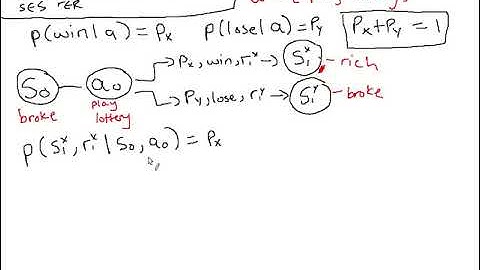 p(win|a) = Px p(lose|a) = Py Px + Py = 1
S0 a0 Px, win, r1^x → S1^x rich
broke play lottery Py, lose, r1^y → S1^y broke
p(S1^x, r1^x | S0, a0) = Px